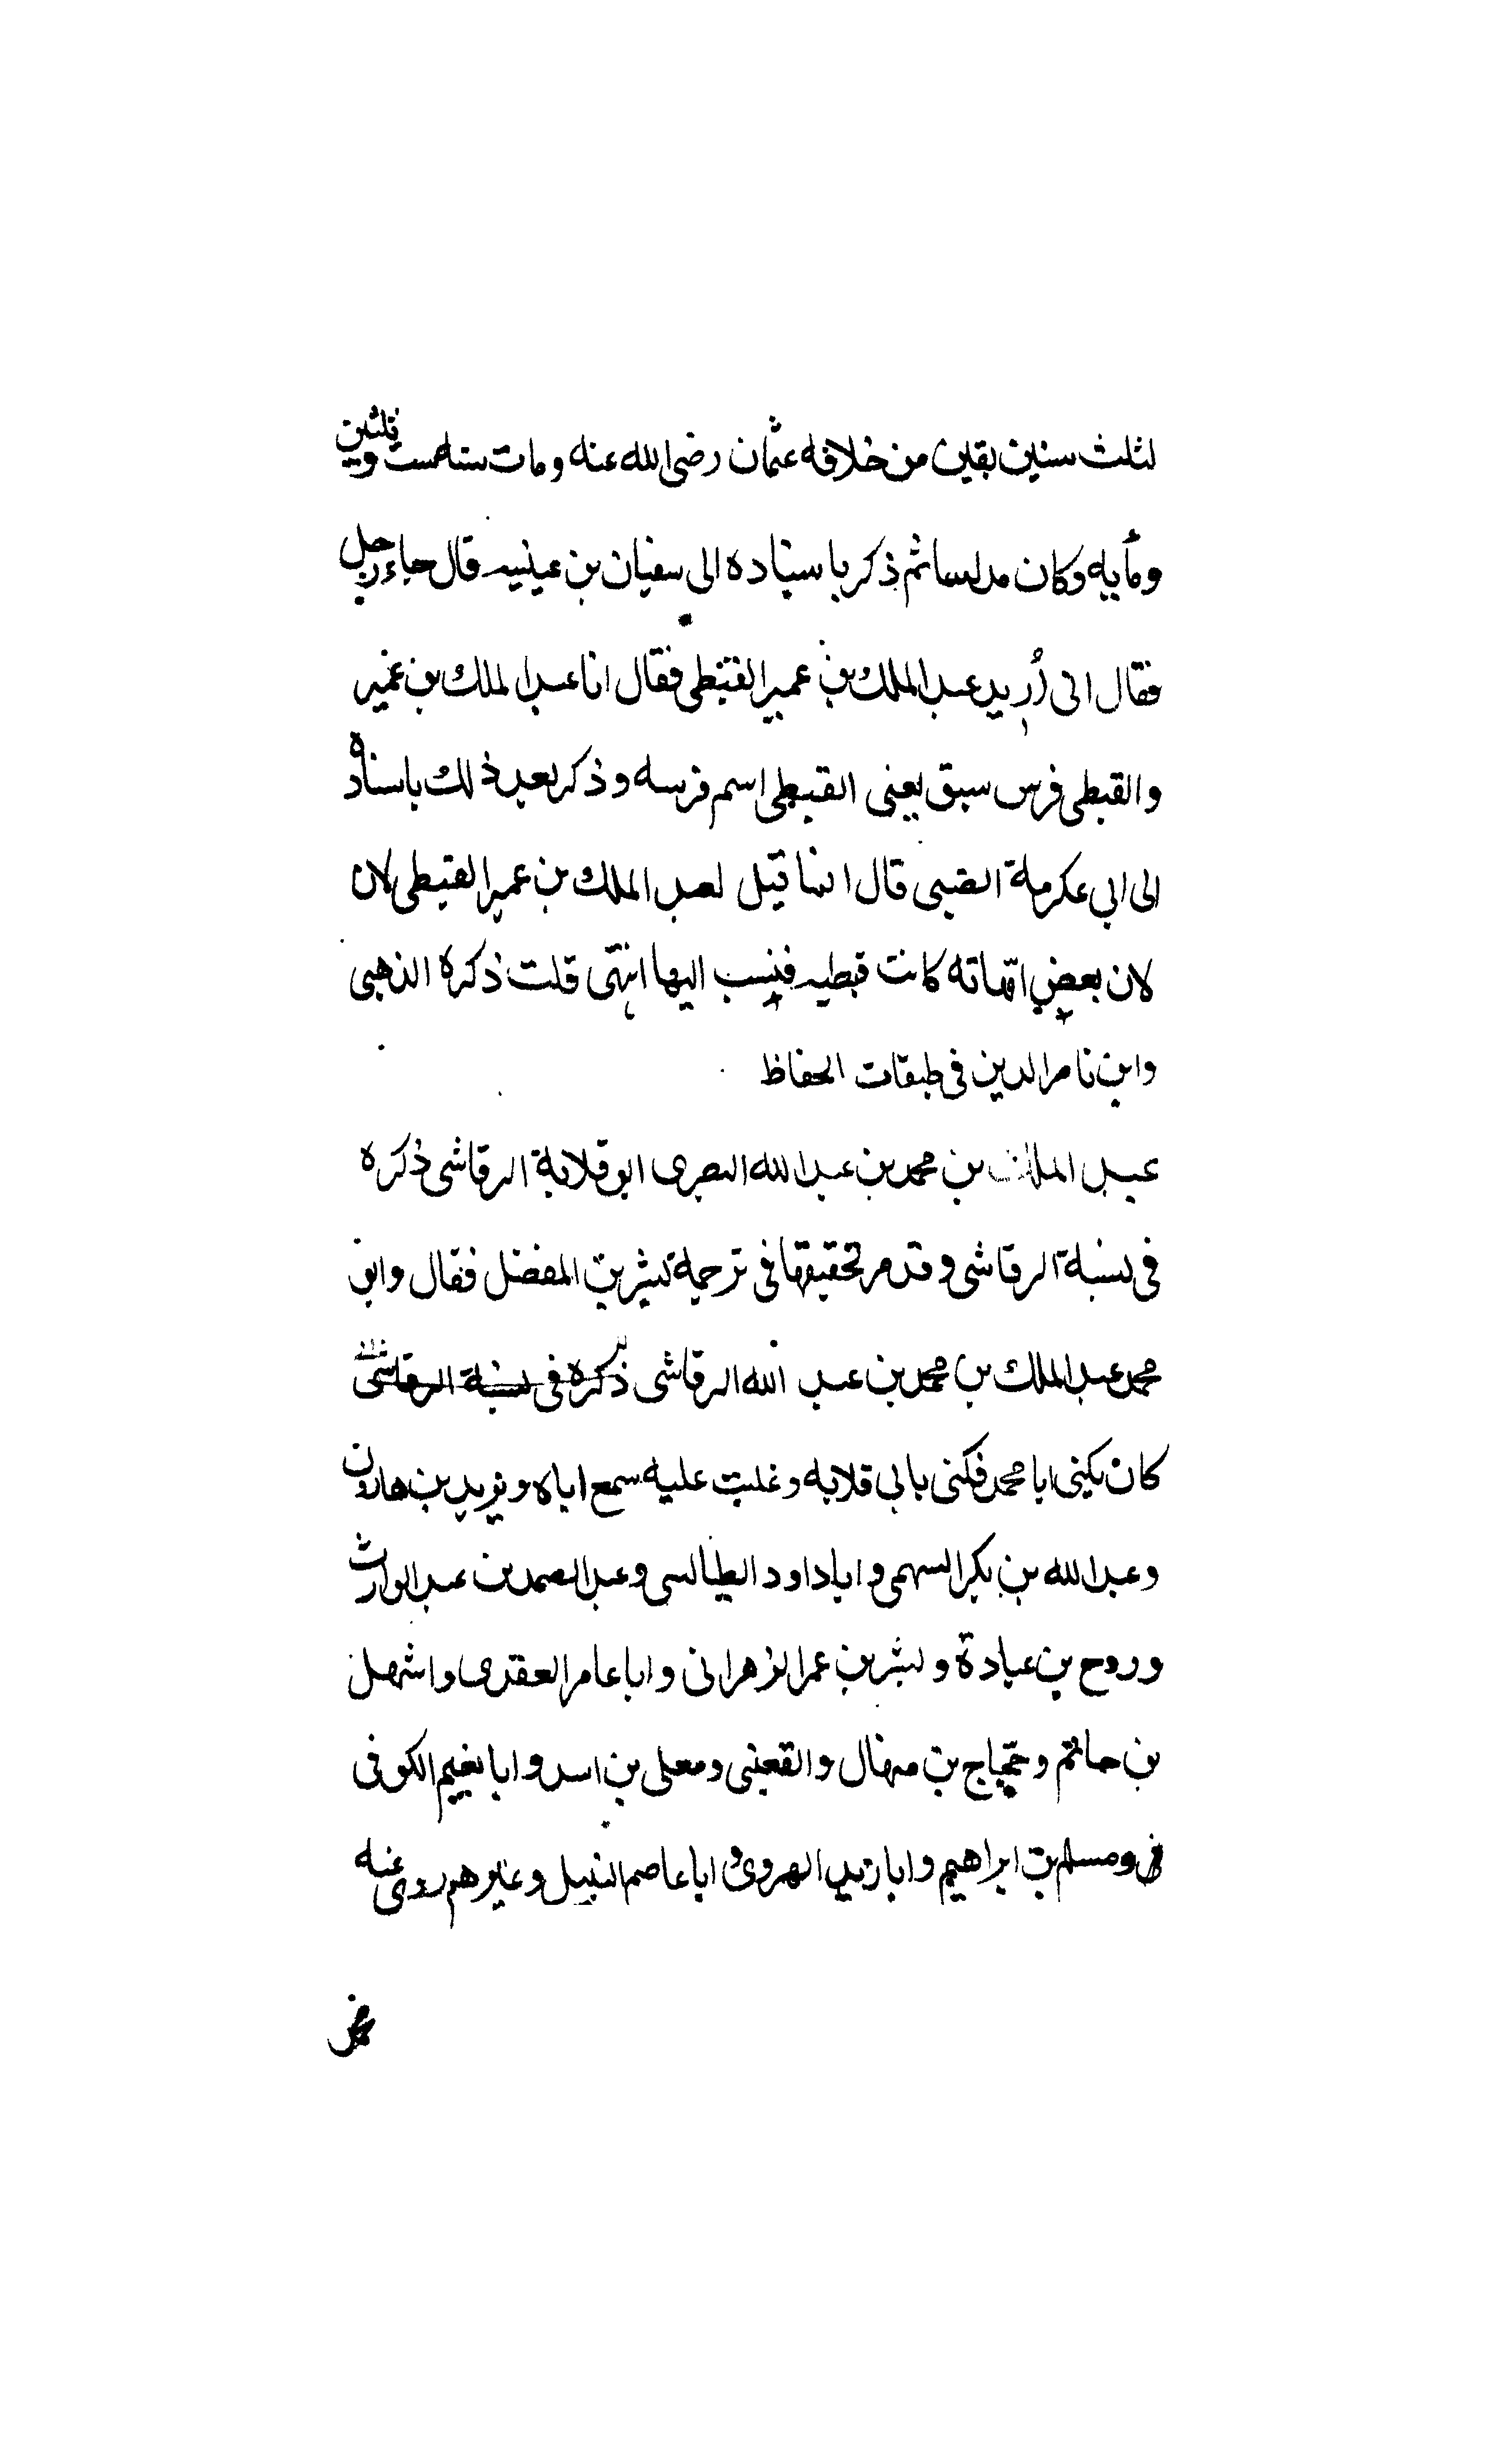 لثلث سنين بقين من خلافه عثمان رضى الله عنه ومات سنه ست وثلثين
ومأيه وكان مدلسا ثم ذكر باسناده الى سفيان بن عيينيه قال جاء رجل
فقال انى أريد عبد الملك بن عمير القبطى فقال انا عبد الملك بن عمير
والقبطى فرس سبق يعنى القبطى اسم فرسه وذكر بعد ذلك باسناده
الى ابي عكرمة الضبى قال انما قيل لعبد الملك بن عمير القبطى لان
لان بعض امّهاته كانت قبطيه فينسب اليها انتهى قلت ذكره الذهبى
وابن ناصر الدين فى طبقات الحفاظ
عبد الملك بن محمد بن عبد الله البصرى ابو قلابة الرقاشى ذكره
فى نسبة الرقاشى وقد مر تحقيقها فى ترجمة بشر بن المفضل فقال وابو
محمد عبد الملك بن محمد بن عبد الله الرقاشى ذكره فى نسبة الرقاشى
كان يكنى ابا محمد فكنى بابى قلابه وغلبت عليه سمع اباه ويزيد بن هارون
وعبد الله بن بكر السهمى وابا داود الطيالسى وعبد الصمد بن عبد الوارث
وروح بن عبادة وبشر بن عمر الزهرانى وابا عامر العقدى واشهل
بن حاتم وحجّاج بن منهال والقعنبى ومعلى بن اسد وابا نعيم الكوفى
ومسلم بن ابراهيم وابا زيد الهروى وابا عاصم النبيل وغيرهم روى عنه